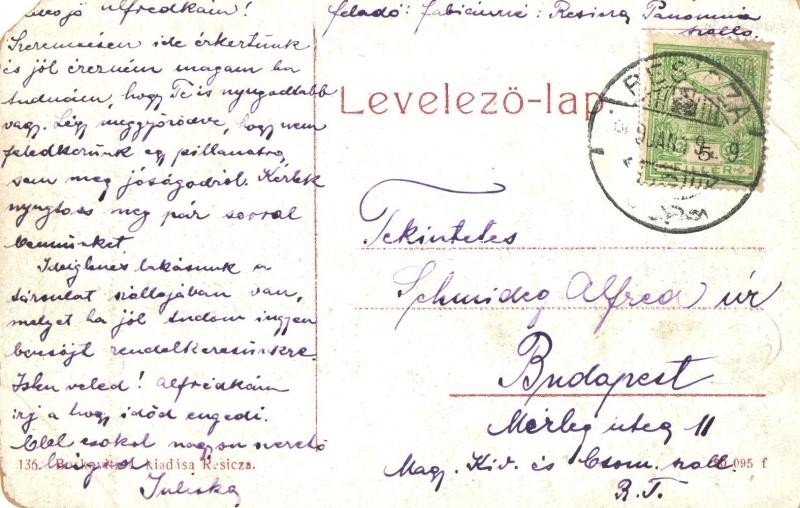 Alfrédkám!
Szerencsésen ide érkeztünk
és jól érezném magam ha
tudnám, hogy Te is nyugodtabb
vagy. Légy meggyőződve, hogy nem
feledkezünk egy pillanatra
sem meg jóságodról. Kérlek
nyugtass meg pár sorral
bennünket
Ideiglenes lakásunk a
társulat szállojában van,
melyet ha jól tudom ingyen
bocsájt rendelkezésünkre.
Isten veled! Alfrédkám
írj a hogy időd engedi.
Ölel csokol nagyon szerető
Juliska
136. kiadása Resicza.
feladó: Fabiánné: Resicza Panonnia
szálló.
Levelező-lap.
RESICZA
Tekintetes
Schmideg Alfréd úr
Budapest
Mérleg uteg 11
Magy. Kiv. és Csom. száll.
R.T.
095 f